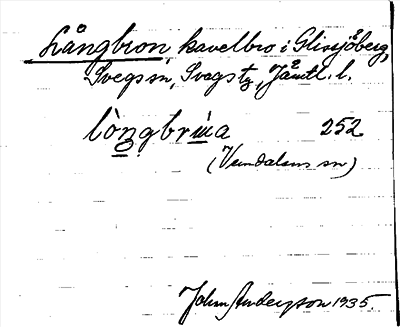 Långbron, kavelbro i Glissjöberg,
Svegs sn, Svegs tg, Jämtl. l.
lòngbrùa 252
(Vemdalens sn)
John Anderson 1935.